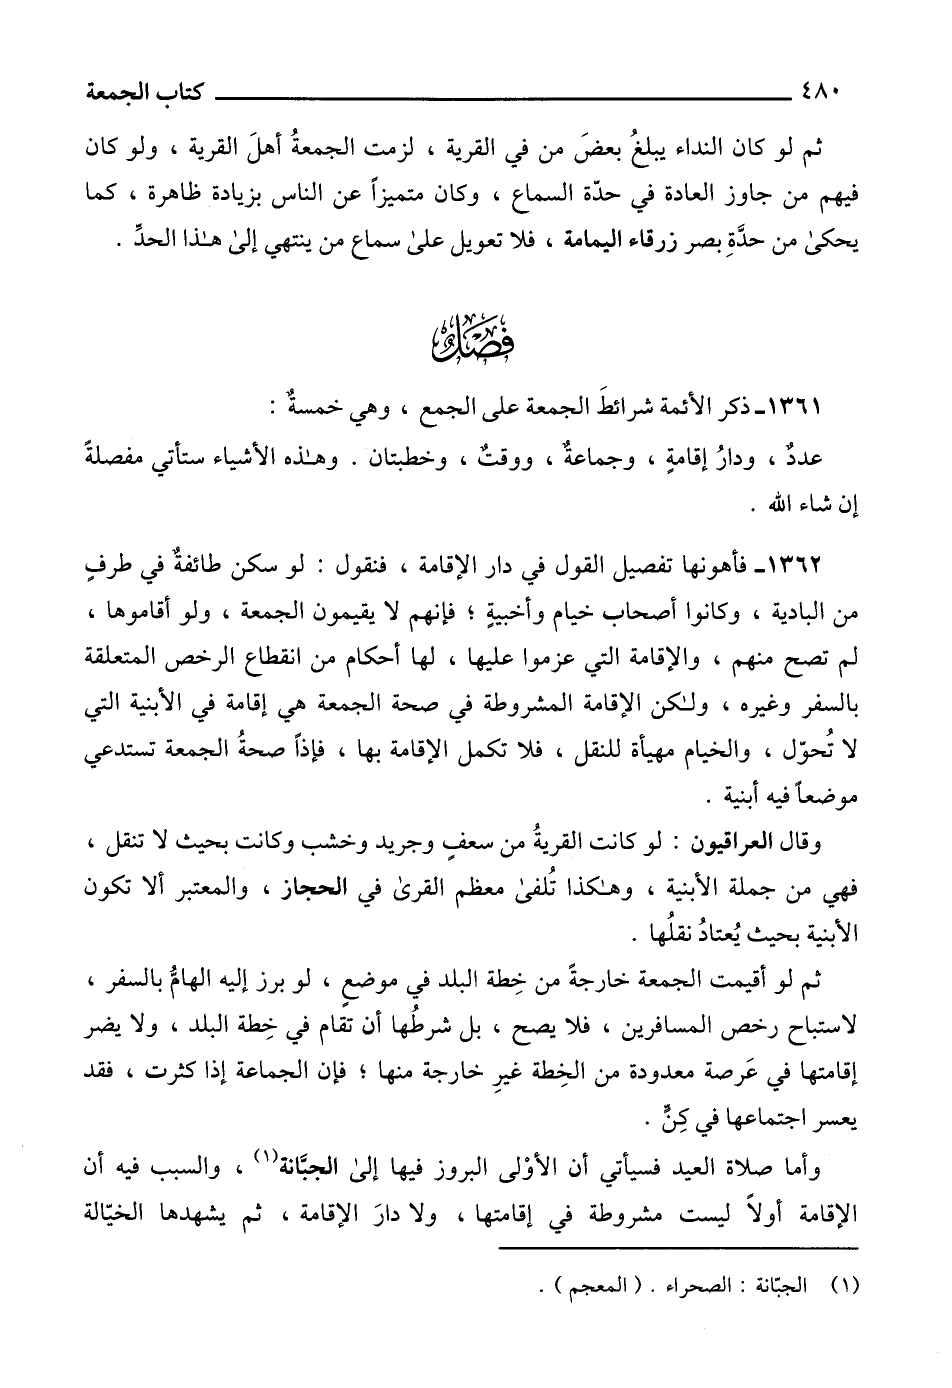 ٤٨٠ ـــــــــــــــــــــ كتاب الجمعة
ثم لو كان النداء يبلغُ بعضَ من في القرية ، لزمت الجمعةُ أهلَ القرية ، ولو كان
فيهم من جاوز العادة في حدّة السماع ، وكان متميزاً عن الناس بزيادة ظاهرة ، كما
يحكىٰ من حدَّةِ بصر زرقاء اليمامة ، فلا تعويل علىٰ سماع من ينتهي إلىٰ هـٰذا الحدِّ .
فصل
١٣٦١ـ ذكر الأئمة شرائطَ الجمعة على الجمع ، وهي خمسةٌ :
عددٌ ، ودارُ إقامةٍ ، وجماعةٌ ، ووقتٌ ، وخطبتان . وهـٰذه الأشياء ستأتي مفصلةً
إن شاء الله .
١٣٦٢ـ فأهونها تفصيل القول في دار الإقامة ، فنقول : لو سكن طائفةٌ في طرفٍ
من البادية ، وكانوا أصحاب خيام وأخبيةٍ ؛ فإنهم لا يقيمون الجمعة ، ولو أقاموها ،
لم تصح منهم ، والإقامة التي عزموا عليها ، لها أحكام من انقطاع الرخص المتعلقة
بالسفر وغيره ، ولـٰكن الإقامة المشروطة في صحة الجمعة هي إقامة في الأبنية التي
لا تُحوّل ، والخيام مهيأة للنقل ، فلا تكمل الإقامة بها ، فإذاً صحةُ الجمعة تستدعي
موضعاً فيه أبنية .
وقال العراقيون : لو كانت القريةُ من سعفٍ وجريد وخشب وكانت بحيث لا تنقل ،
فهي من جملة الأبنية ، وهـٰكذا تُلفىٰ معظم القرىٰ في الحجاز ، والمعتبر ألا تكون
الأبنية بحيث يُعتادُ نقلُها .
ثم لو أقيمت الجمعة خارجةً من خِطة البلد في موضعٍ ، لو برز إليه الهامُّ بالسفر ،
لاستباح رخص المسافرين ، فلا يصح ، بل شرطُها أن تقام في خِطة البلد ، ولا يضر
إقامتها في عَرصة معدودة من الخِطة غيرِ خارجة منها ؛ فإن الجماعة إذا كثرت ، فقد
يعسر اجتماعها في كِنٍّ .
وأما صلاة العيد فسيأتي أن الأوْلى البروز فيها إلىٰ الجبَّانة(١) ، والسبب فيه أن
الإقامة أولاً ليست مشروطة في إقامتها ، ولا دارَ الإقامة ، ثم يشهدها الخيّالة
(١) الجبّانة : الصحراء . ( المعجم ) .